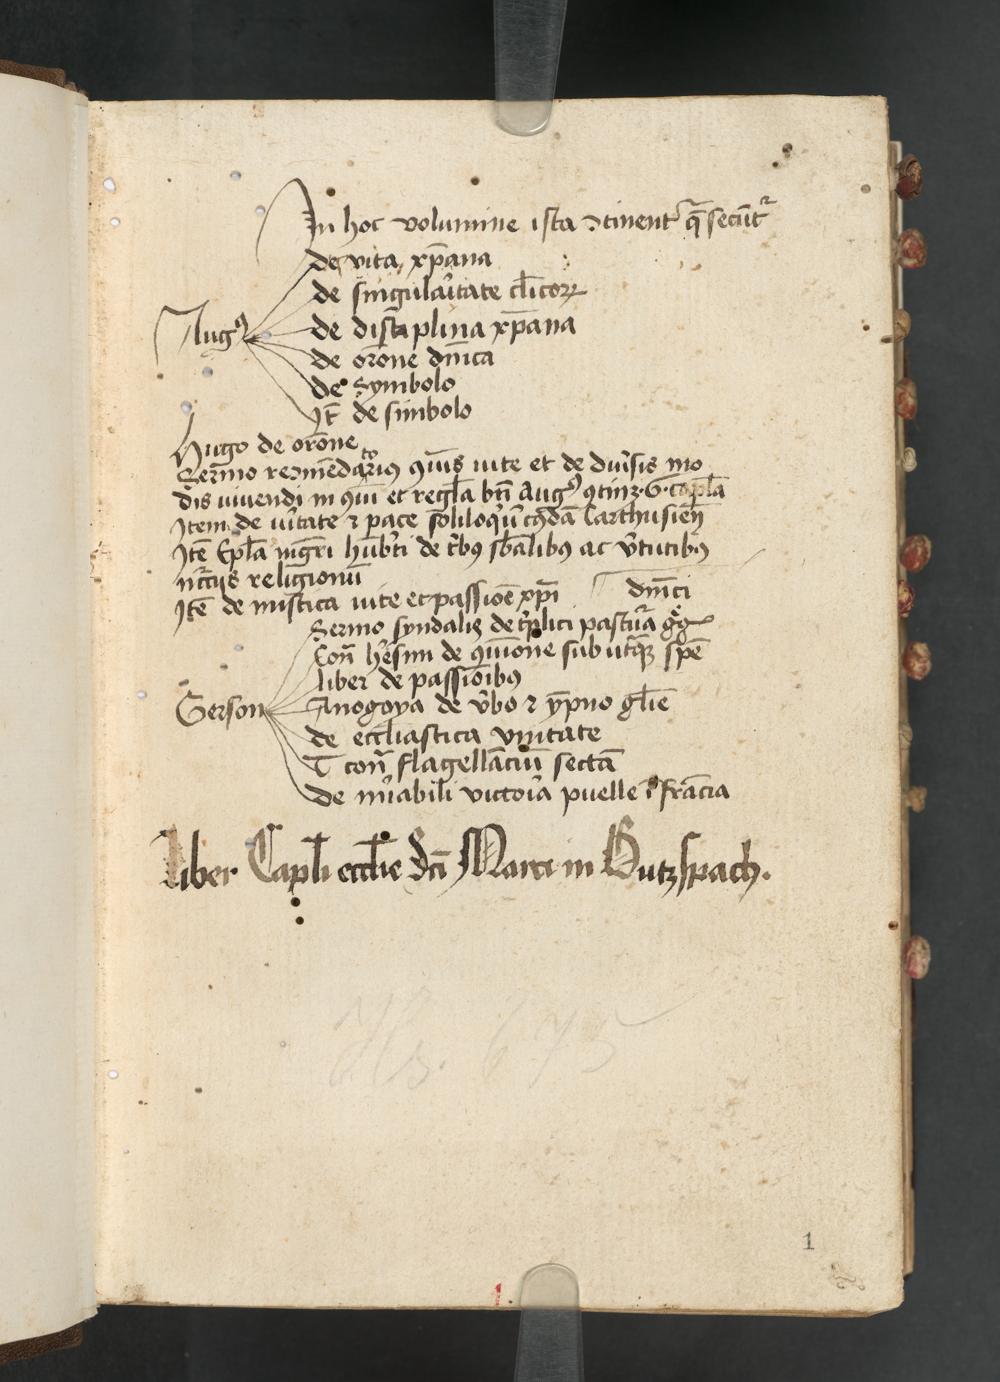 In hoc volumine ista ↄtinent᷑ q̄ secūt᷑
de vita xp̄ana
de singula͛itate cl̄icoꝝ
Augꝰ
de disciplina xp̄ana
de or̄one dn̄ica
de symbolo
It̄ de simbolo
Hugo de or̄one
Sermo reↄmēdatoriꝰ ꝯuīs uite et de diu͛sis mo
dis uiuendi in ꝯui et regl̄a btī Augꝰ ꝯtinꝫ · 6 · capl̄a
Item de u͛itate ⁊ pace soliloq͛ū cꝰdā Carthusien̄
Itē Epl̄a mgr̄i hūb͛ti de t͛bꝰ sb̄alibꝰ ac v͛tutibꝰ
nc̄c̄ijs religionū
Itē de mistica uite et passiōe xp̄i dnīci
Sermo synodalis de t͛plici pastura g͛g͛
Con̄ h͛esim de ꝯuīone sub ut͛qꝫ spē
liber de passioībꝰ
Gerson
Anogoya de v͛bo ⁊ ypno gl̄ie
de eccl̄iastica vnitate
T con̄ flagellāciū sectā
de m͛iabili victoria puelle ī frācia
Liber Capl̄i eccl̄ie Sc̄i Marci in Butzspach.
Hs. 675
1
1.